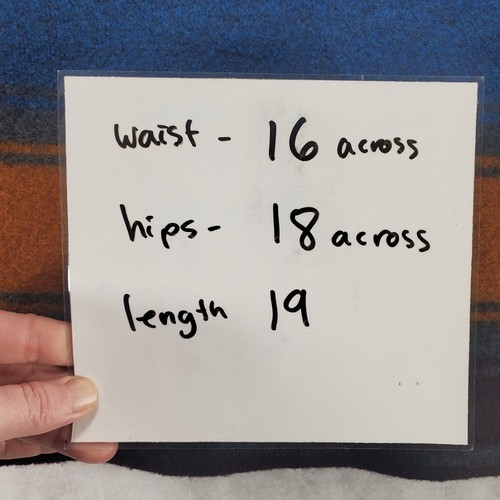 waist - 16 across
hips- 18 across
length 19